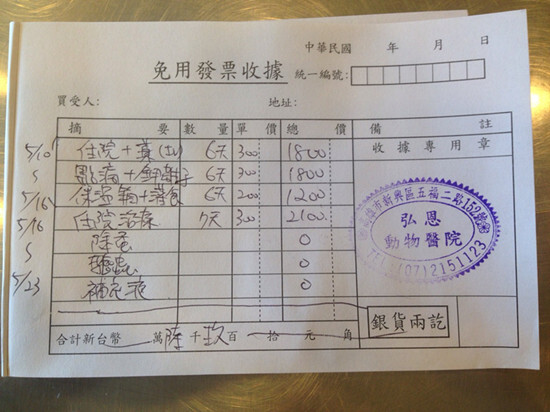 中華民國 年 月 日
免用發票收據 統一編號:
買受人: 地址:
摘 要 數 量 單 價 總 價 備 註
5/10 住院+ 6天 300 1800 收據專用章
S 6天 300 1800
5/16 保溫箱+營食 6天 200 1200
5/16 住院治療 7天 300 2100
S 除蚤 0
驅蟲 0
5/23 補充液 0
高雄市新興區五福二路152號
弘恩
動物醫院
TEL:(07)2151123
銀貨兩訖
合計新台幣 萬陸千玖百 拾 元 角